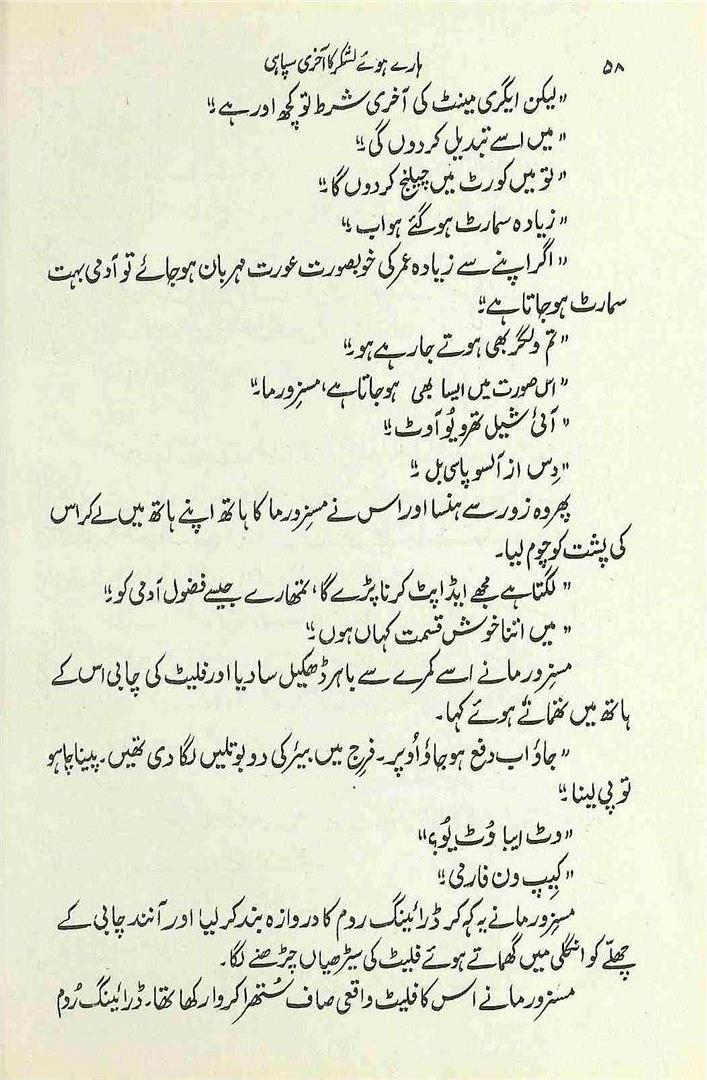 ۵۸ ہارے ہوئے لشکر کا آخری سپاہی
"لیکن ایگری مینٹ کی آخری شرط تو کچھ اور ہے۔"
"میں اسے تبدیل کر دوں گی۔"
"تو میں کورٹ میں چیلنج کر دوں گا۔"
"زیادہ سمارٹ ہو گئے ہو اب۔"
"اگر اپنے سے زیادہ عمر کی خوبصورت عورت مہربان ہو جائے تو آدمی بہت
سمارٹ ہو جاتا ہے۔"
"تم ولگر بھی ہوتے جا رہے ہو۔"
"اس صورت میں ایسا بھی ہو جاتا ہے، مسزورما۔"
"آئی شیل تھرو یُو آوٹ۔"
"دِس از آلسو پاسی بل۔"
پھر وہ زور سے ہنسا اور اس نے مسزورما کا ہاتھ اپنے ہاتھ میں لے کر اس
کی پشت کو چوم لیا۔
"لگتا ہے مجھے ایڈاپٹ کرنا پڑے گا، تمھارے جیسے فضول آدمی کو۔"
"میں اتنا خوش قسمت کہاں ہوں۔"
مسزورما نے اسے کمرے سے باہر ڈھکیل سا دیا اور فلیٹ کی چابی اس کے
ہاتھ میں تھماتے ہوئے کہا۔
"جاؤ اب دفع ہو جاؤ اُوپر۔ فرج میں بیئر کی دو بوتلیں لگا دی تھیں۔ پینا چاہو
تو پی لینا۔"
"وٹ ایبا وُٹ یُو؟"
"کیپ ون فار می۔"
مسزورما نے یہ کہہ کر ڈرائینگ روم کا دروازہ بند کر لیا اور آنند چابی کے
چھلّے کو انگلی میں گھماتے ہوئے فلیٹ کی سیڑھیاں چڑھنے لگا۔
مسزورما نے اس کا فلیٹ واقعی صاف سُتھرا کروا رکھا تھا۔ ڈرائینگ رُوم